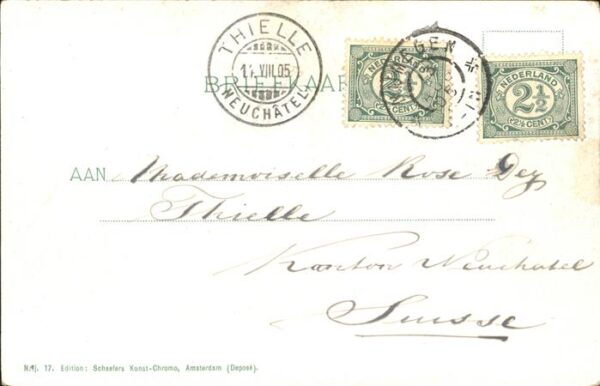 THIELLE
14.VIII.05
(NEUCHÂTEL)
BRIEFKAART
NEDERLAND
2½ CENT
NEDERLAND
2½
2½ CENT
AAN Mademoiselle Rose Dey
Thielle
Kanton Neuchatel
Suisse
N.j. 17. Edition: Schaefers Kunst-Chromo, Amsterdam (Deposé).